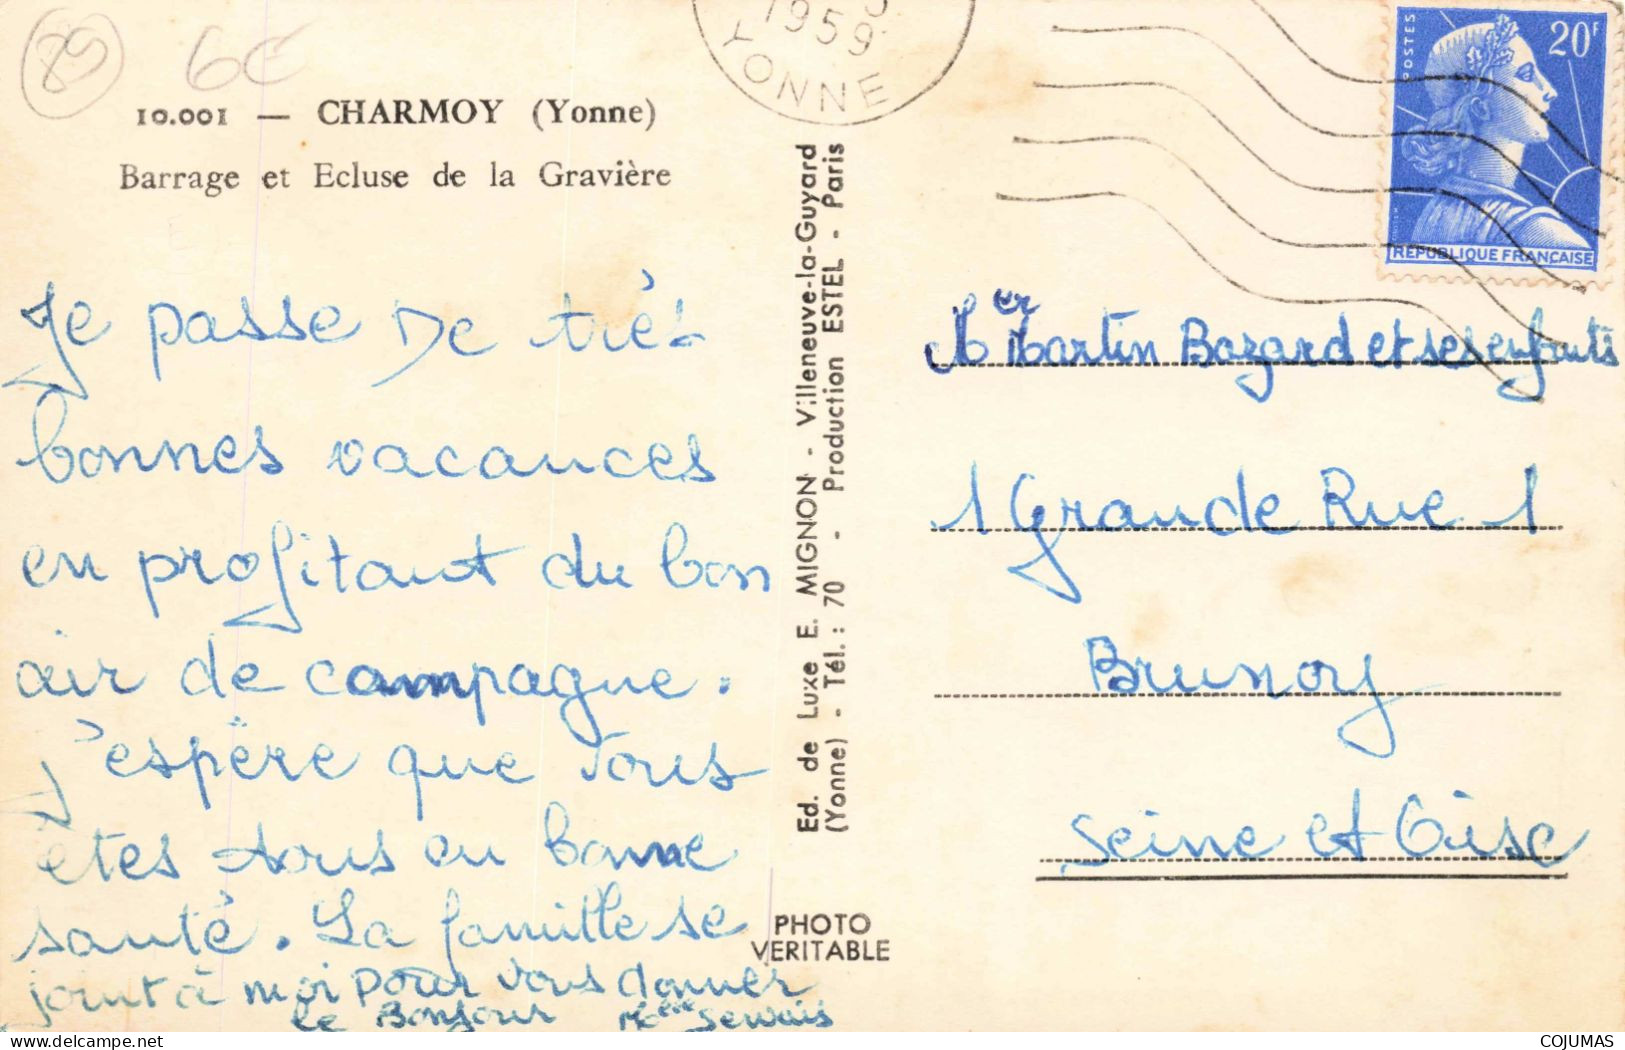 89
6€
10.001 — CHARMOY (Yonne)
Barrage et Ecluse de la Gravière
1959
YONNE
POSTES
20F
RÉPUBLIQUE FRANÇAISE
Je passe De très
bonnes vacances
en profitant du bon
air de campagne.
J'espère que vous
êtes tous en bonne
santé. La famille se
joint à moi pour vous donner
le Bonjour Melle Servais
Ed. de Luxe E. MIGNON - Villeneuve-la-Guyard
(Yonne) - Tél. : 70 - Production ESTEL - Paris
PHOTO
VERITABLE
Martin Bazard et ses enfants
1 Grande Rue 1
Brunoy
Seine et Oise
COJUMAS